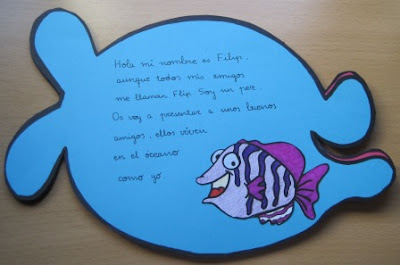 Hola mi nombre es Filip,
aunque todos mis amigos
me llaman Flip. Soy un pez.
Os voy a presentar a unos buenos
amigos, ellos viven
en el océano
como yo